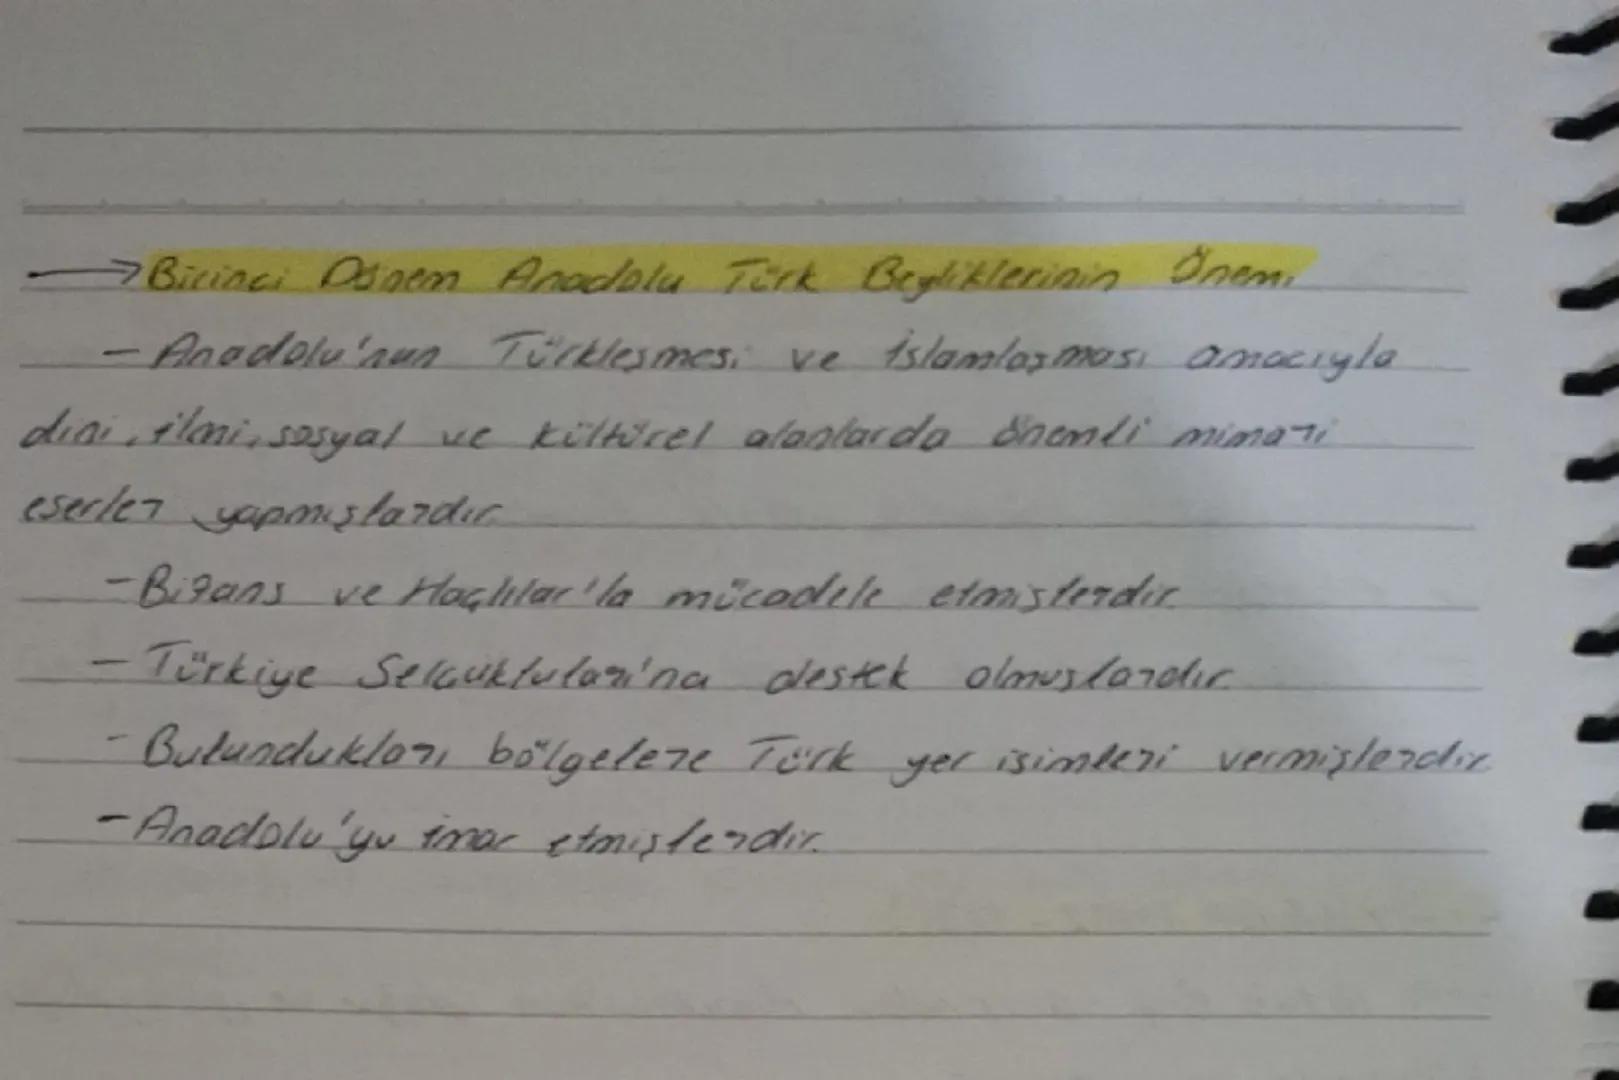 → Birinci Dönem Anadolu Türk Beyliklerinin Önemi
- Anadolu'nun Türkleşmesi ve İslamlaşması amacıyla
dini, ilmi, sosyal ve kültürel alanlarda önemli mimari
eserler yapmışlardır.
- Bizans ve Haçlılar'la mücadele etmişlerdir.
- Türkiye Selçukluları'na destek olmuşlardır.
- Bulundukları bölgelere Türk yer isimleri vermişlerdir.
- Anadolu'yu imar etmişlerdir.